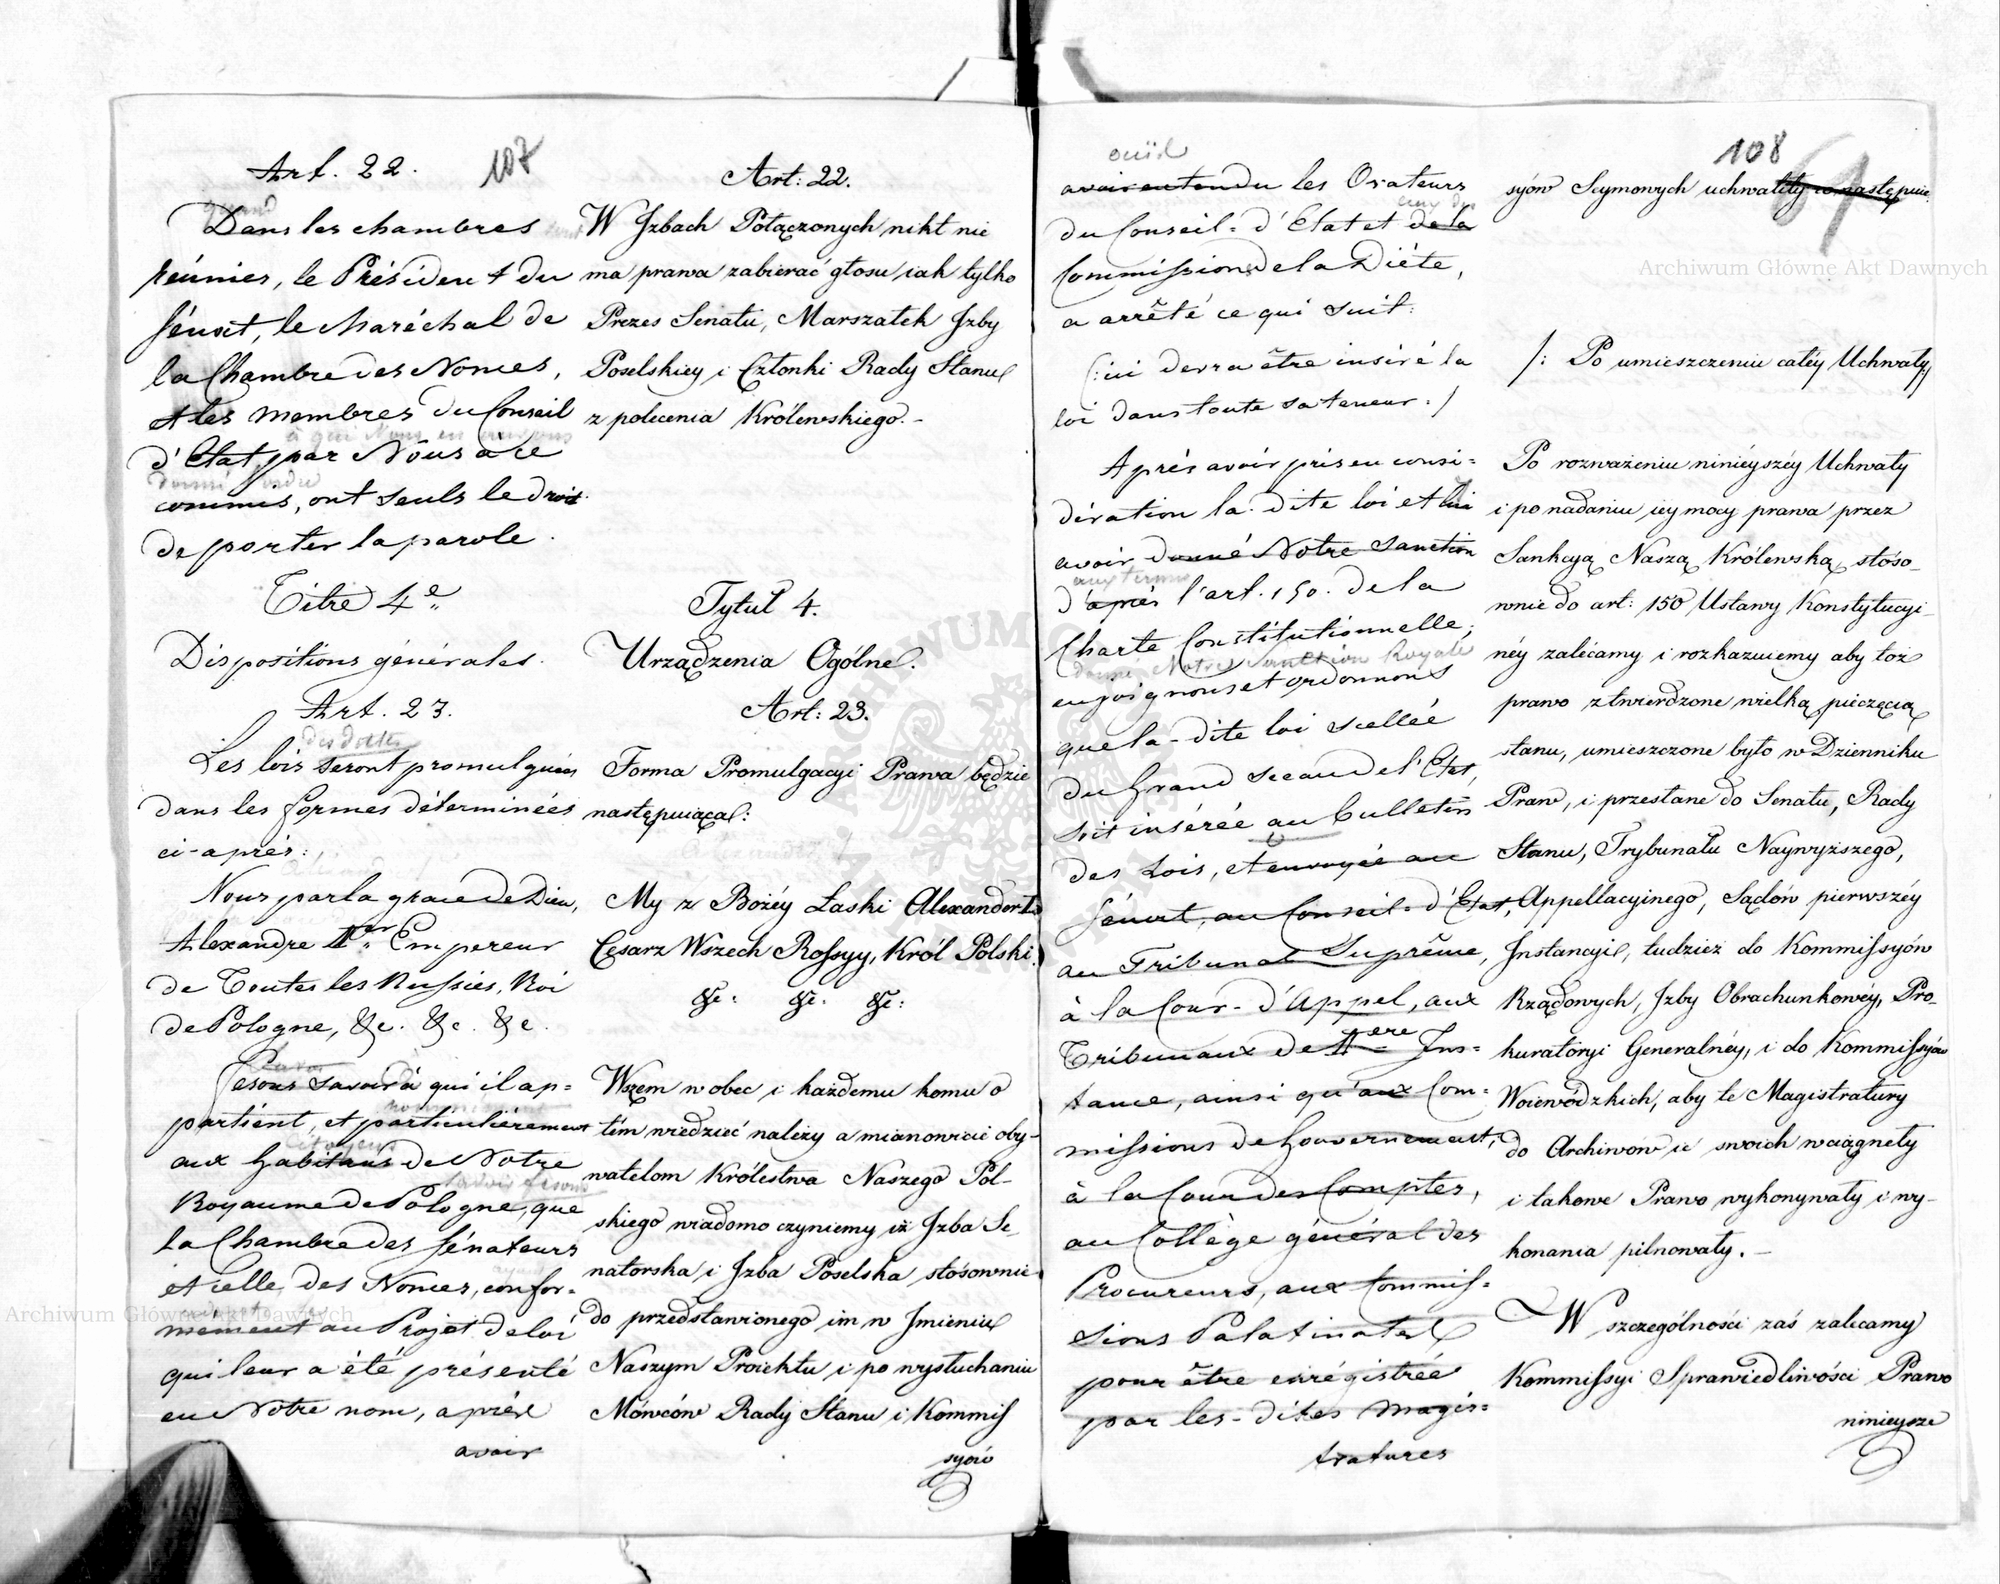 107
Art. 22.
quand
Dans les chambres
réunies, le Président du
Sénat, le Maréchal de
la Chambre des Nonces,
et les membres du Conseil
à qui Nous en aurons
d'Etat, par Nous à ce
donné l'ordre
commis, ont seuls le droit
de porter la parole.
Titre 4e
Dispositions générales.
Art. 23.
des dittes
Les lois seront promulguées
dans les formes déterminées
ci-après:
Nous par la grace de Dieu,
Alexandre Ier Empereur
de Toutes les Russies, Roi
de Pologne, &c. &c. &c.
Fesons savoir à qui il ap=
partient, et particulièrement
citoyens
aux habitans de Notre
savoir fesons
Royaume de Pologne, que
la Chambre des Sénateurs
et celle des Nonces, confor-
mement au Projet de loi
qui leur a été présenté
en Notre nom, après
avoir
Art: 22.
W Jzbach Połączonych nikt nie
ma prawa zabierać głosu iak tylko
Prezes Senatu, Marszałek Jzby
Poselskiey i Członki Rady Stanu
z polecenia Królewskiego.-
Tytuł 4.
Urządzenia Ogólne.
Art: 23.
Forma Promulgacyi Prawa będzie
następuiąca:
My z Bożéy Łaski Alexander I.
Cesarz Wszech Rossyy, Król Polski
&c: &c: &c:
Wszem w obec i każdemu komu o
tém wiedzieć należy a mianowicie oby-
watelom Królestwa Naszego Pol-
skiego wiadomo czyniemy iż Jzba Se-
natorska i Jzba Poselska stósownie
do przedstawionego im w Jmieniu
Naszym Proiektu i po wysłuchaniu
Mówców Rady Stanu i Kommis
syów
108
61
ouïs
avoir entendu les Orateurs
ceux des
du Conseil-d'Etat et de la
Commissions de la Diéte,
a arrêté ce qui suit:
(:ici devra être inséré la
loi dans toute sa teneur:)
Après avoir pris en consi=
dération la-dite loi et lui
avoir donné Notre Sanction
aux termes
d'après l'art. 150. de la
Charte Constitutionnelle,
donné Notre Sanction Royale
enjoignons et ordonnons
que la-dite loi scellée
du Grand Sceau de l'Etat,
soit insérée au bulletin
des Lois, et envoyée au
Sénat, au Conseil-d'Etat,
au Tribunal Suprême,
à la Cour-d'Appel, aux
Tribunaux de 1ere Ins-
tance, ainsi qu'aux Com-
missions de Gouvernement,
à la Cour des Comptes,
au Collège général des
Procureurs, aux Commis-
sions Palatinales
pour être enrégistrée
par les-dites Magis-
tratures
syów Seymowych uchwaliły co następuie.
/: Po umieszczeniu całéy Uchwały:/
Po rozważeniu ninieyszéy Uchwały
i po nadaniu iey mocy prawa przez
Sankcyą Naszą Królewską, stóso-
wnie do art: 150 Ustawy Konstytucyi-
néy zalécamy i rozkazuiemy aby toż
prawo ztwierdzone wielką pieczęcią
stanu, umieszczone było w Dzienniku
Praw, i przesłane do Senatu, Rady
Stanu, Trybunału Naywyższego,
Appellacyinego, Sądów pierwszéy
Jnstancyi, tudzież do Kommissyów
Rządowych, Jzby Obrachunkowéy, Pro-
kuratoryi Generalnéy, i do Kommissyów
Woiewódzkich, aby te Magistratury
do Archiwów ie swoich wciągnęły
i takowe Prawo wykonywały i wy-
konania pilnowały.-
W szczególności zaś zalecamy
Kommissyi Sprawiedliwości Prawo
ninieysze
Archiwum Główne Akt Dawnych
Archiwum Główne Akt Dawnych